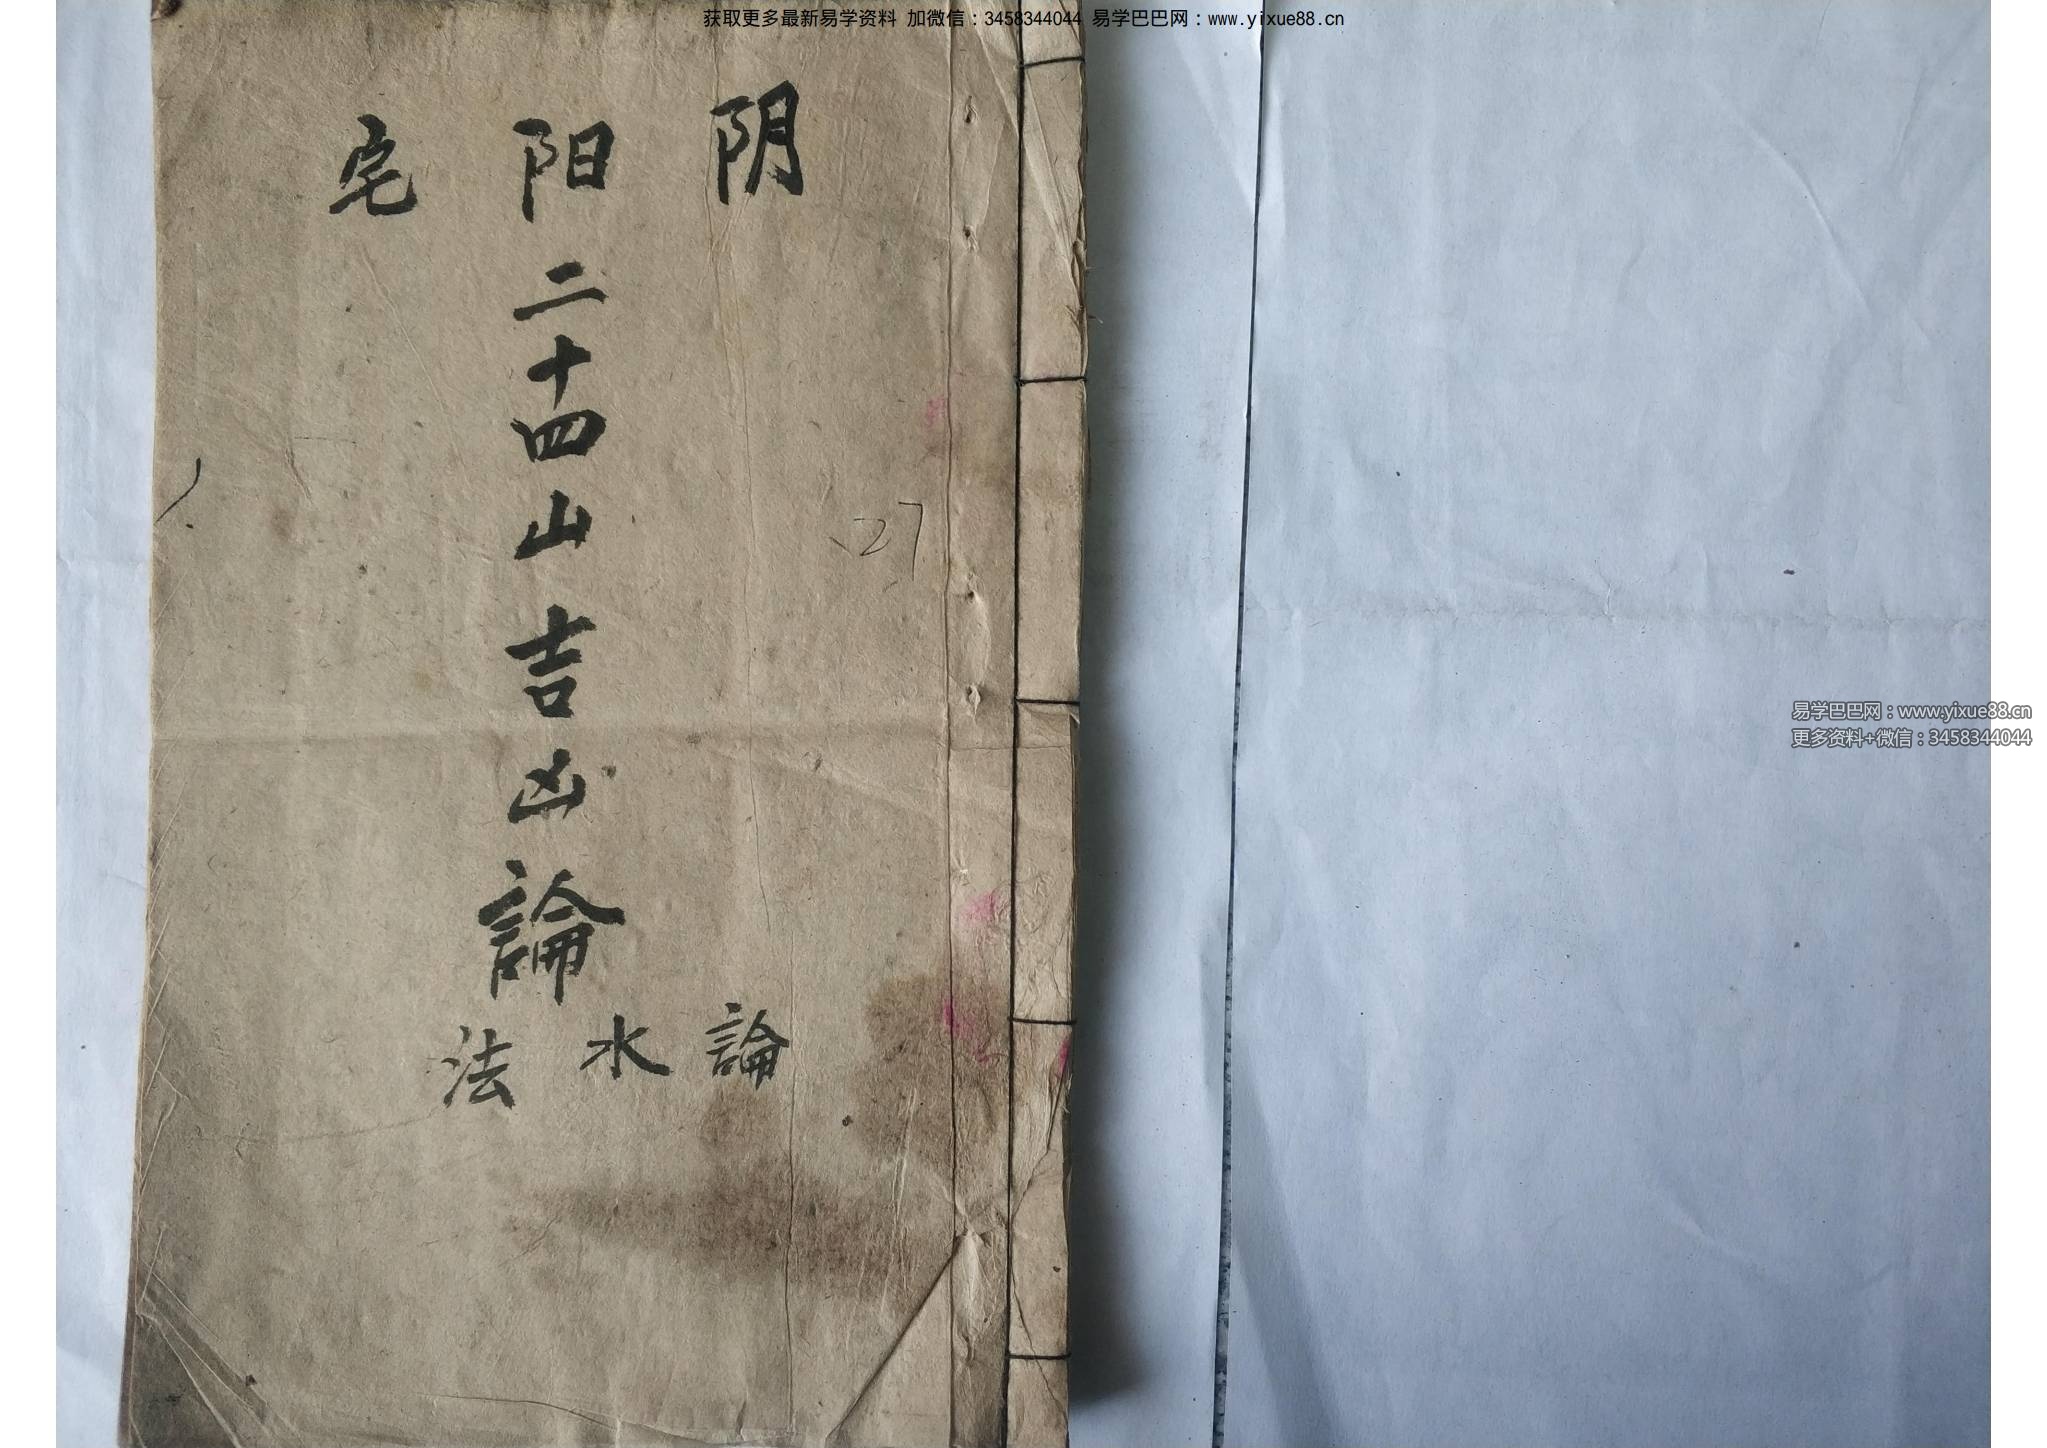 获取更多最新易学资料 加微信：3458344044 易学巴巴网：www.yixue88.cn
阴阳宅
二十四山吉凶論
論水法
27
易学巴巴网：www.yixue88.cn
更多资料+微信：3458344044